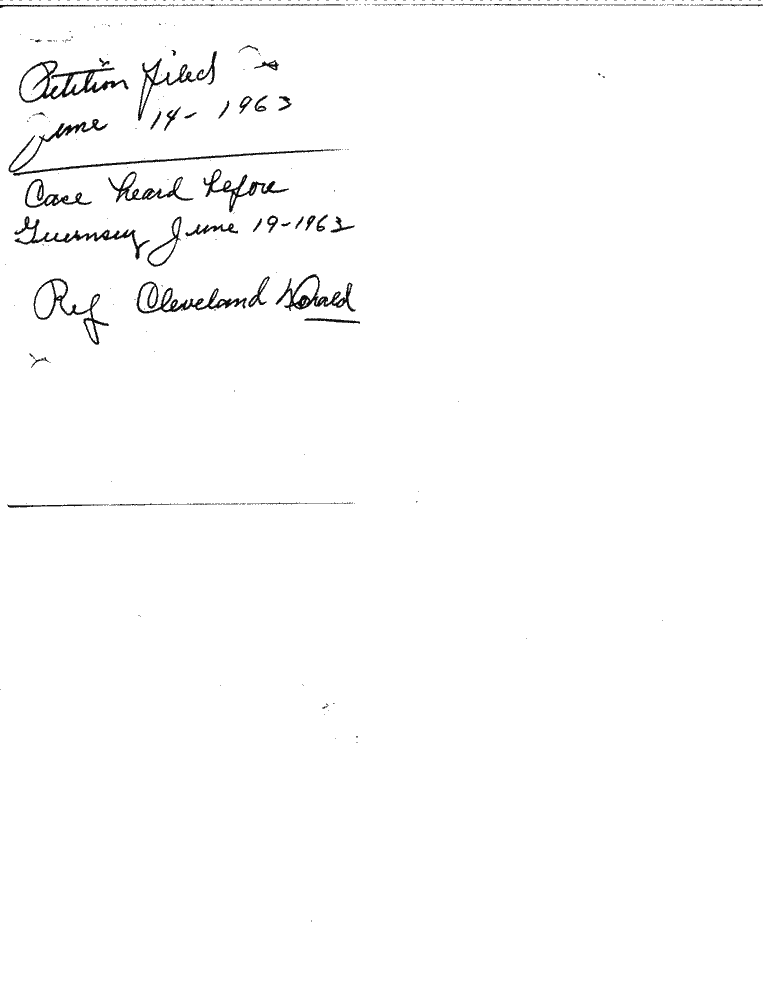 Petition filed
June 14- 1963
Case heard before
Guernsey June 19-1963
Ref Cleveland Donald